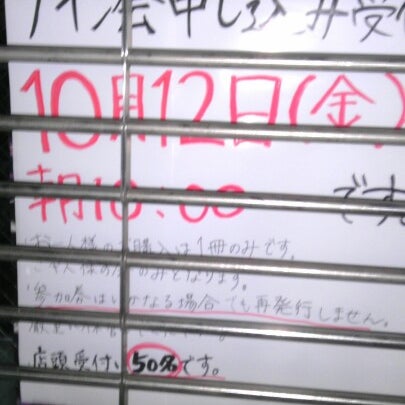 イン会申し込み受
10月12日(金)
朝10:00 です
お一人様のご購入は1冊のみです。
のみとなります。
参加券はいかなる場合でも再発行しません。
店頭受付、50名です。